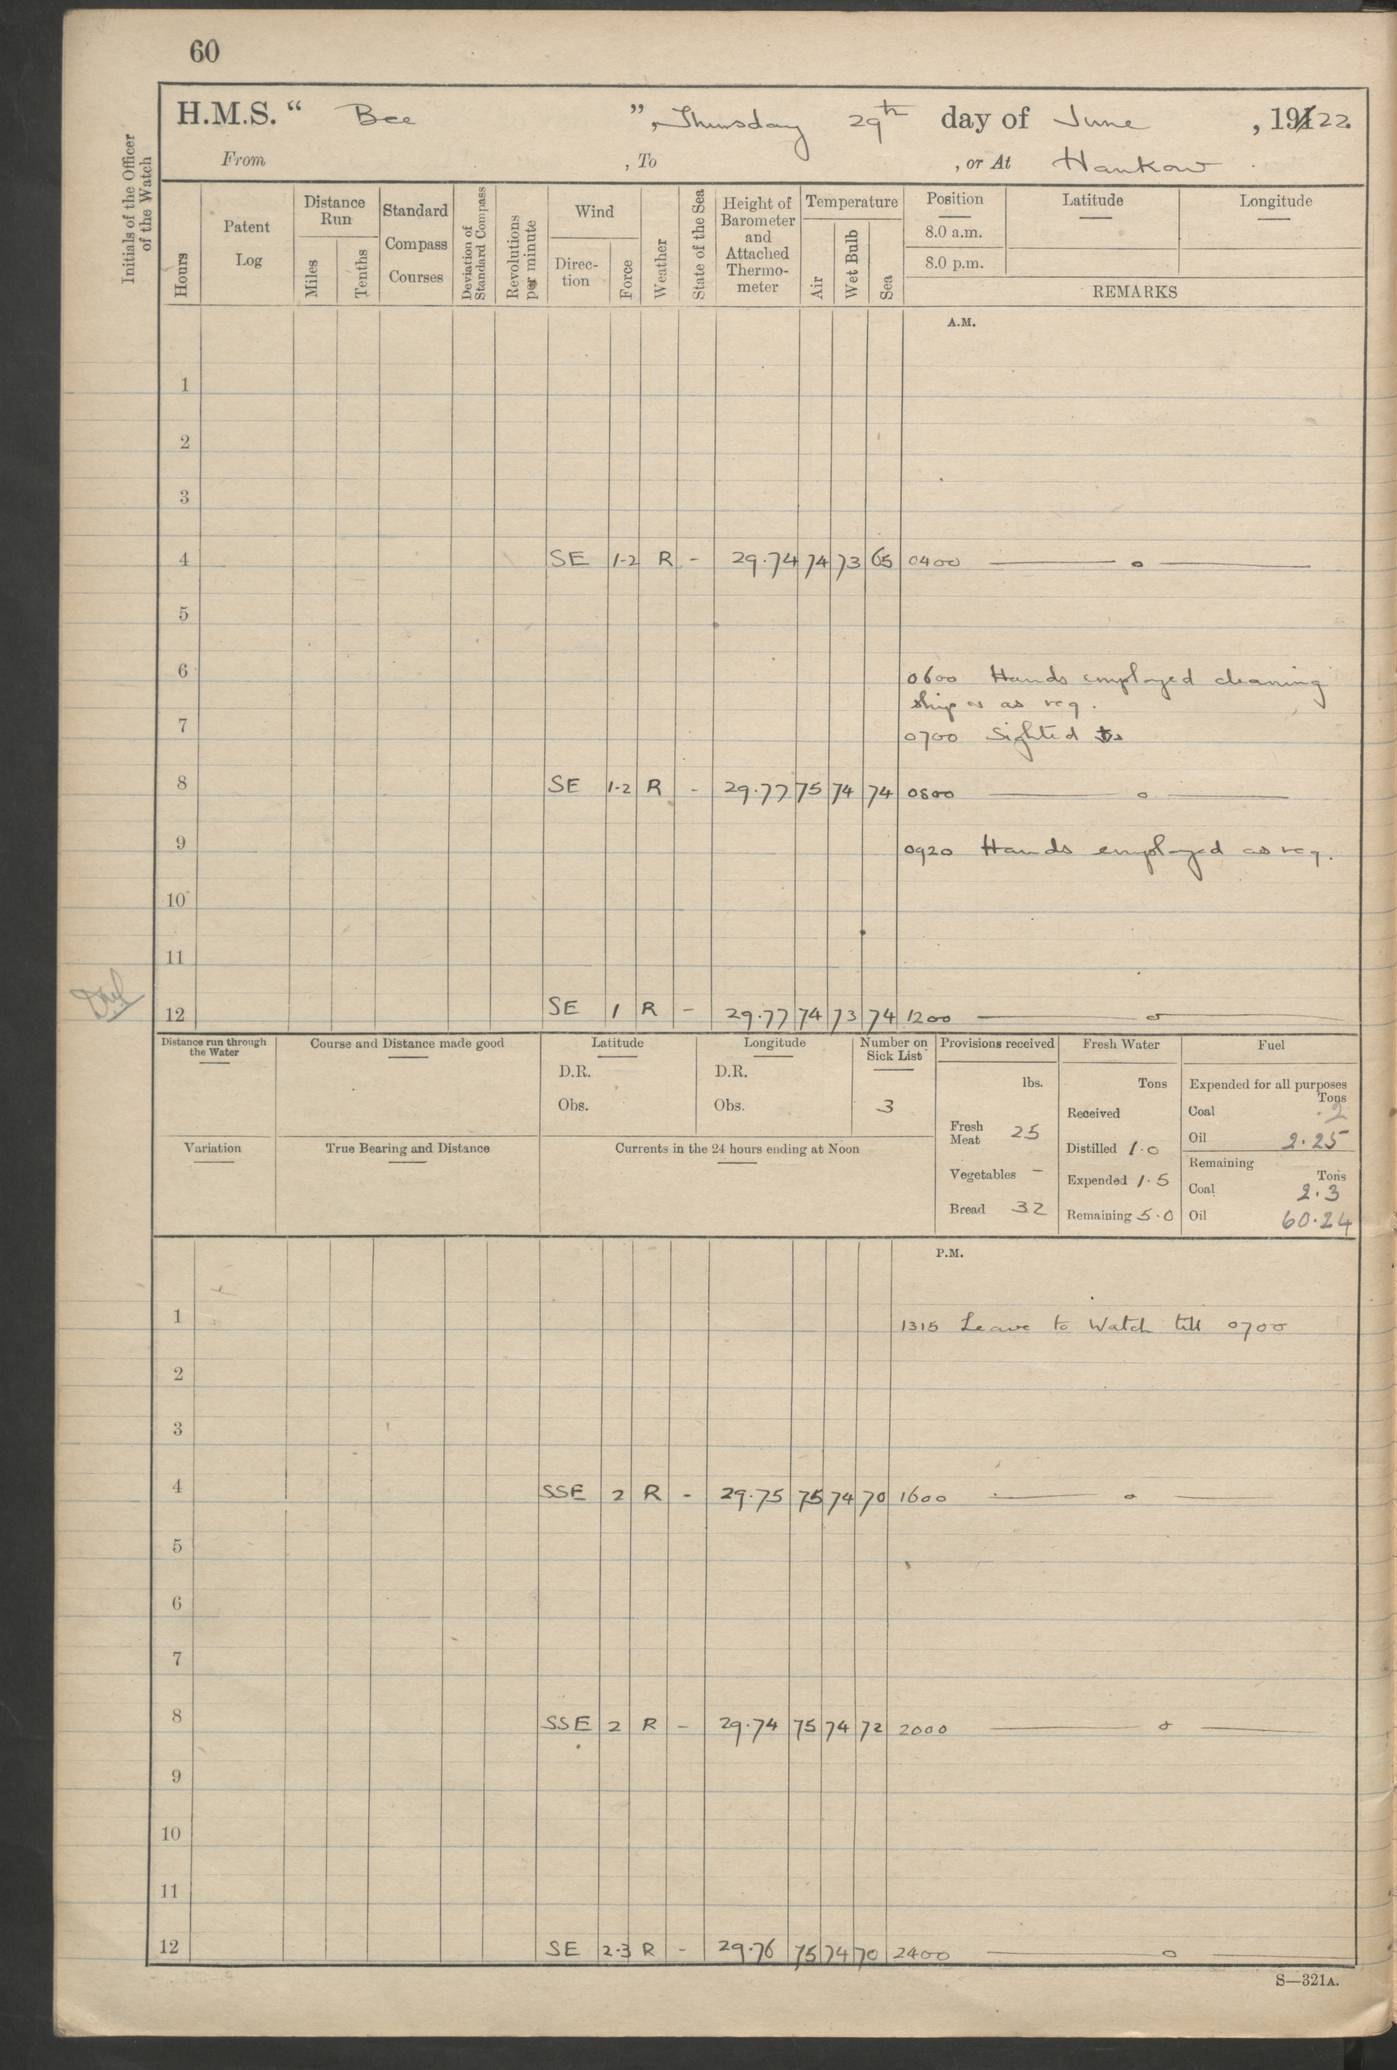 60
H.M.S. “ Bee ”, Thursday 29th day of June , 1922.
From , To , or At Hankow .
Initials of the Officer of the Watch
Hours
Patent Log
Distance Run
Miles
Tenths
Standard Compass Courses
Deviation of Standard Compass
Revolutions per minute
Wind
Direc-tion
Force
Weather
State of the Sea
Height of Barometer and Attached Thermo-meter
Temperature
Air
Wet Bulb
Sea
Position
8.0 a.m.
8.0 p.m.
Latitude
Longitude
REMARKS
A.M.
1
2
3
4 SE 1-2 R - 29.74 74 73 65 0400 — o —
5
6 0600 Hands employed cleaning
ship & as req.
7 0700 Sighted
8 SE 1-2 R - 29.77 75 74 74 0800 — o —
9 0920 Hands employed as req.
10
11
12 SE 1 R - 29.77 74 73 74 1200 — o
Distance run through the Water
Course and Distance made good
Latitude
D.R.
Obs.
Longitude
D.R.
Obs.
Number on Sick List
3
Variation
True Bearing and Distance
Currents in the 24 hours ending at Noon
Provisions received
lbs.
Fresh Meat 25
Vegetables -
Bread 32
Fresh Water
Tons
Received
Distilled 1.0
Expended 1.5
Remaining 5.0
Fuel
Expended for all purposes
Tons
Coal .2
Oil 2.25
Remaining
Tons
Coal 2.3
Oil 60.24
P.M.
1 1315 Leave to Watch till 0700
2
3
4 SSE 2 R - 29.75 75 74 70 1600 — o —
5
6
7
8 SSE 2 R - 29.74 75 74 72 2000 — o —
9
10
11
12 SE 2.3 R - 29.76 75 74 70 2400 — o —
S—321A.